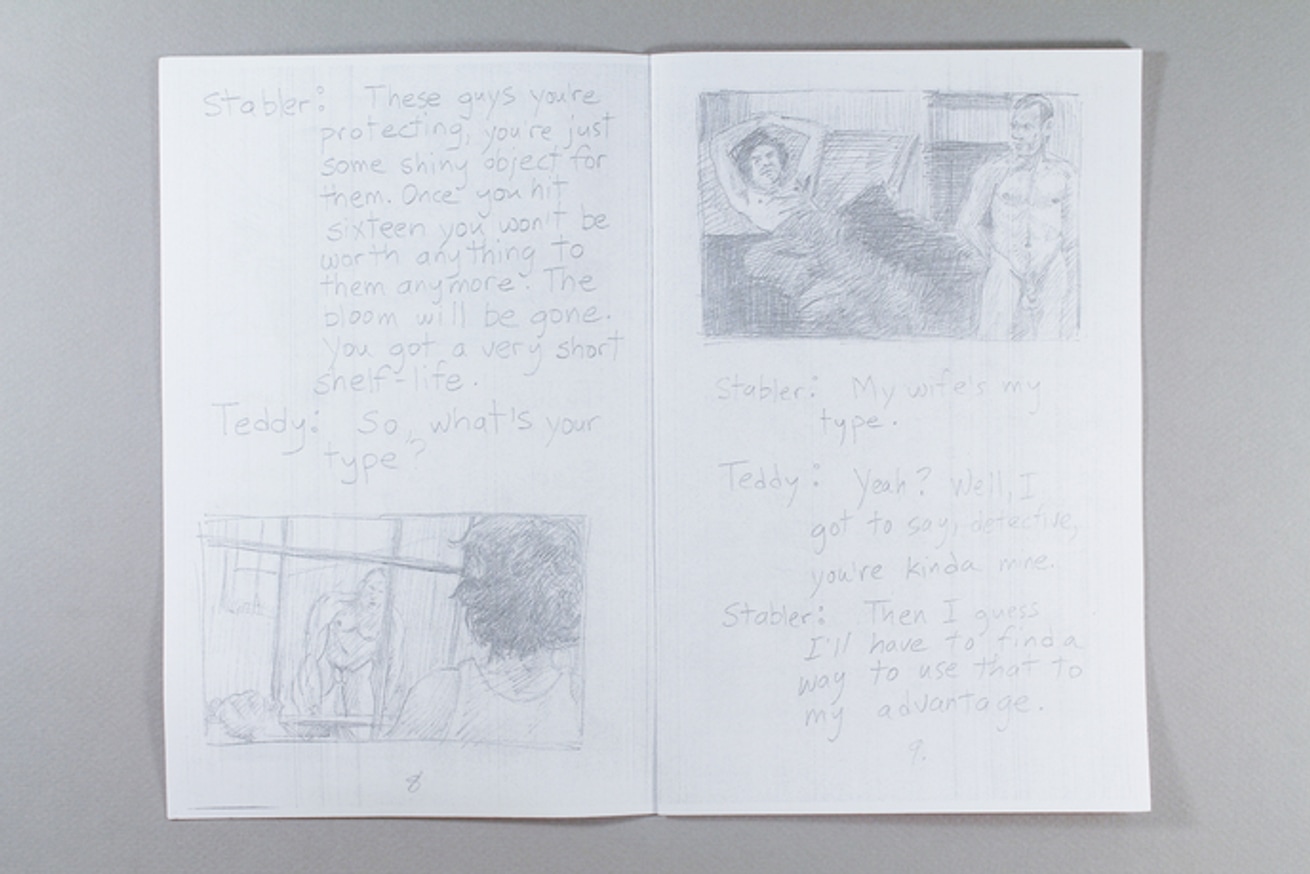 Stabler: These guys you're
protecting, you're just
some shiny object for
them. Once you hit
sixteen you won't be
worth anything to
them anymore. The
bloom will be gone.
You got a very short
shelf-life.
Teddy: So, what's your
type?
8
Stabler: My wife's my
type.
Teddy: Yeah? Well, I
got to say, detective,
you're kinda mine.
Stabler: Then I guess
I'll have to find a
way to use that to
my advantage.
9.